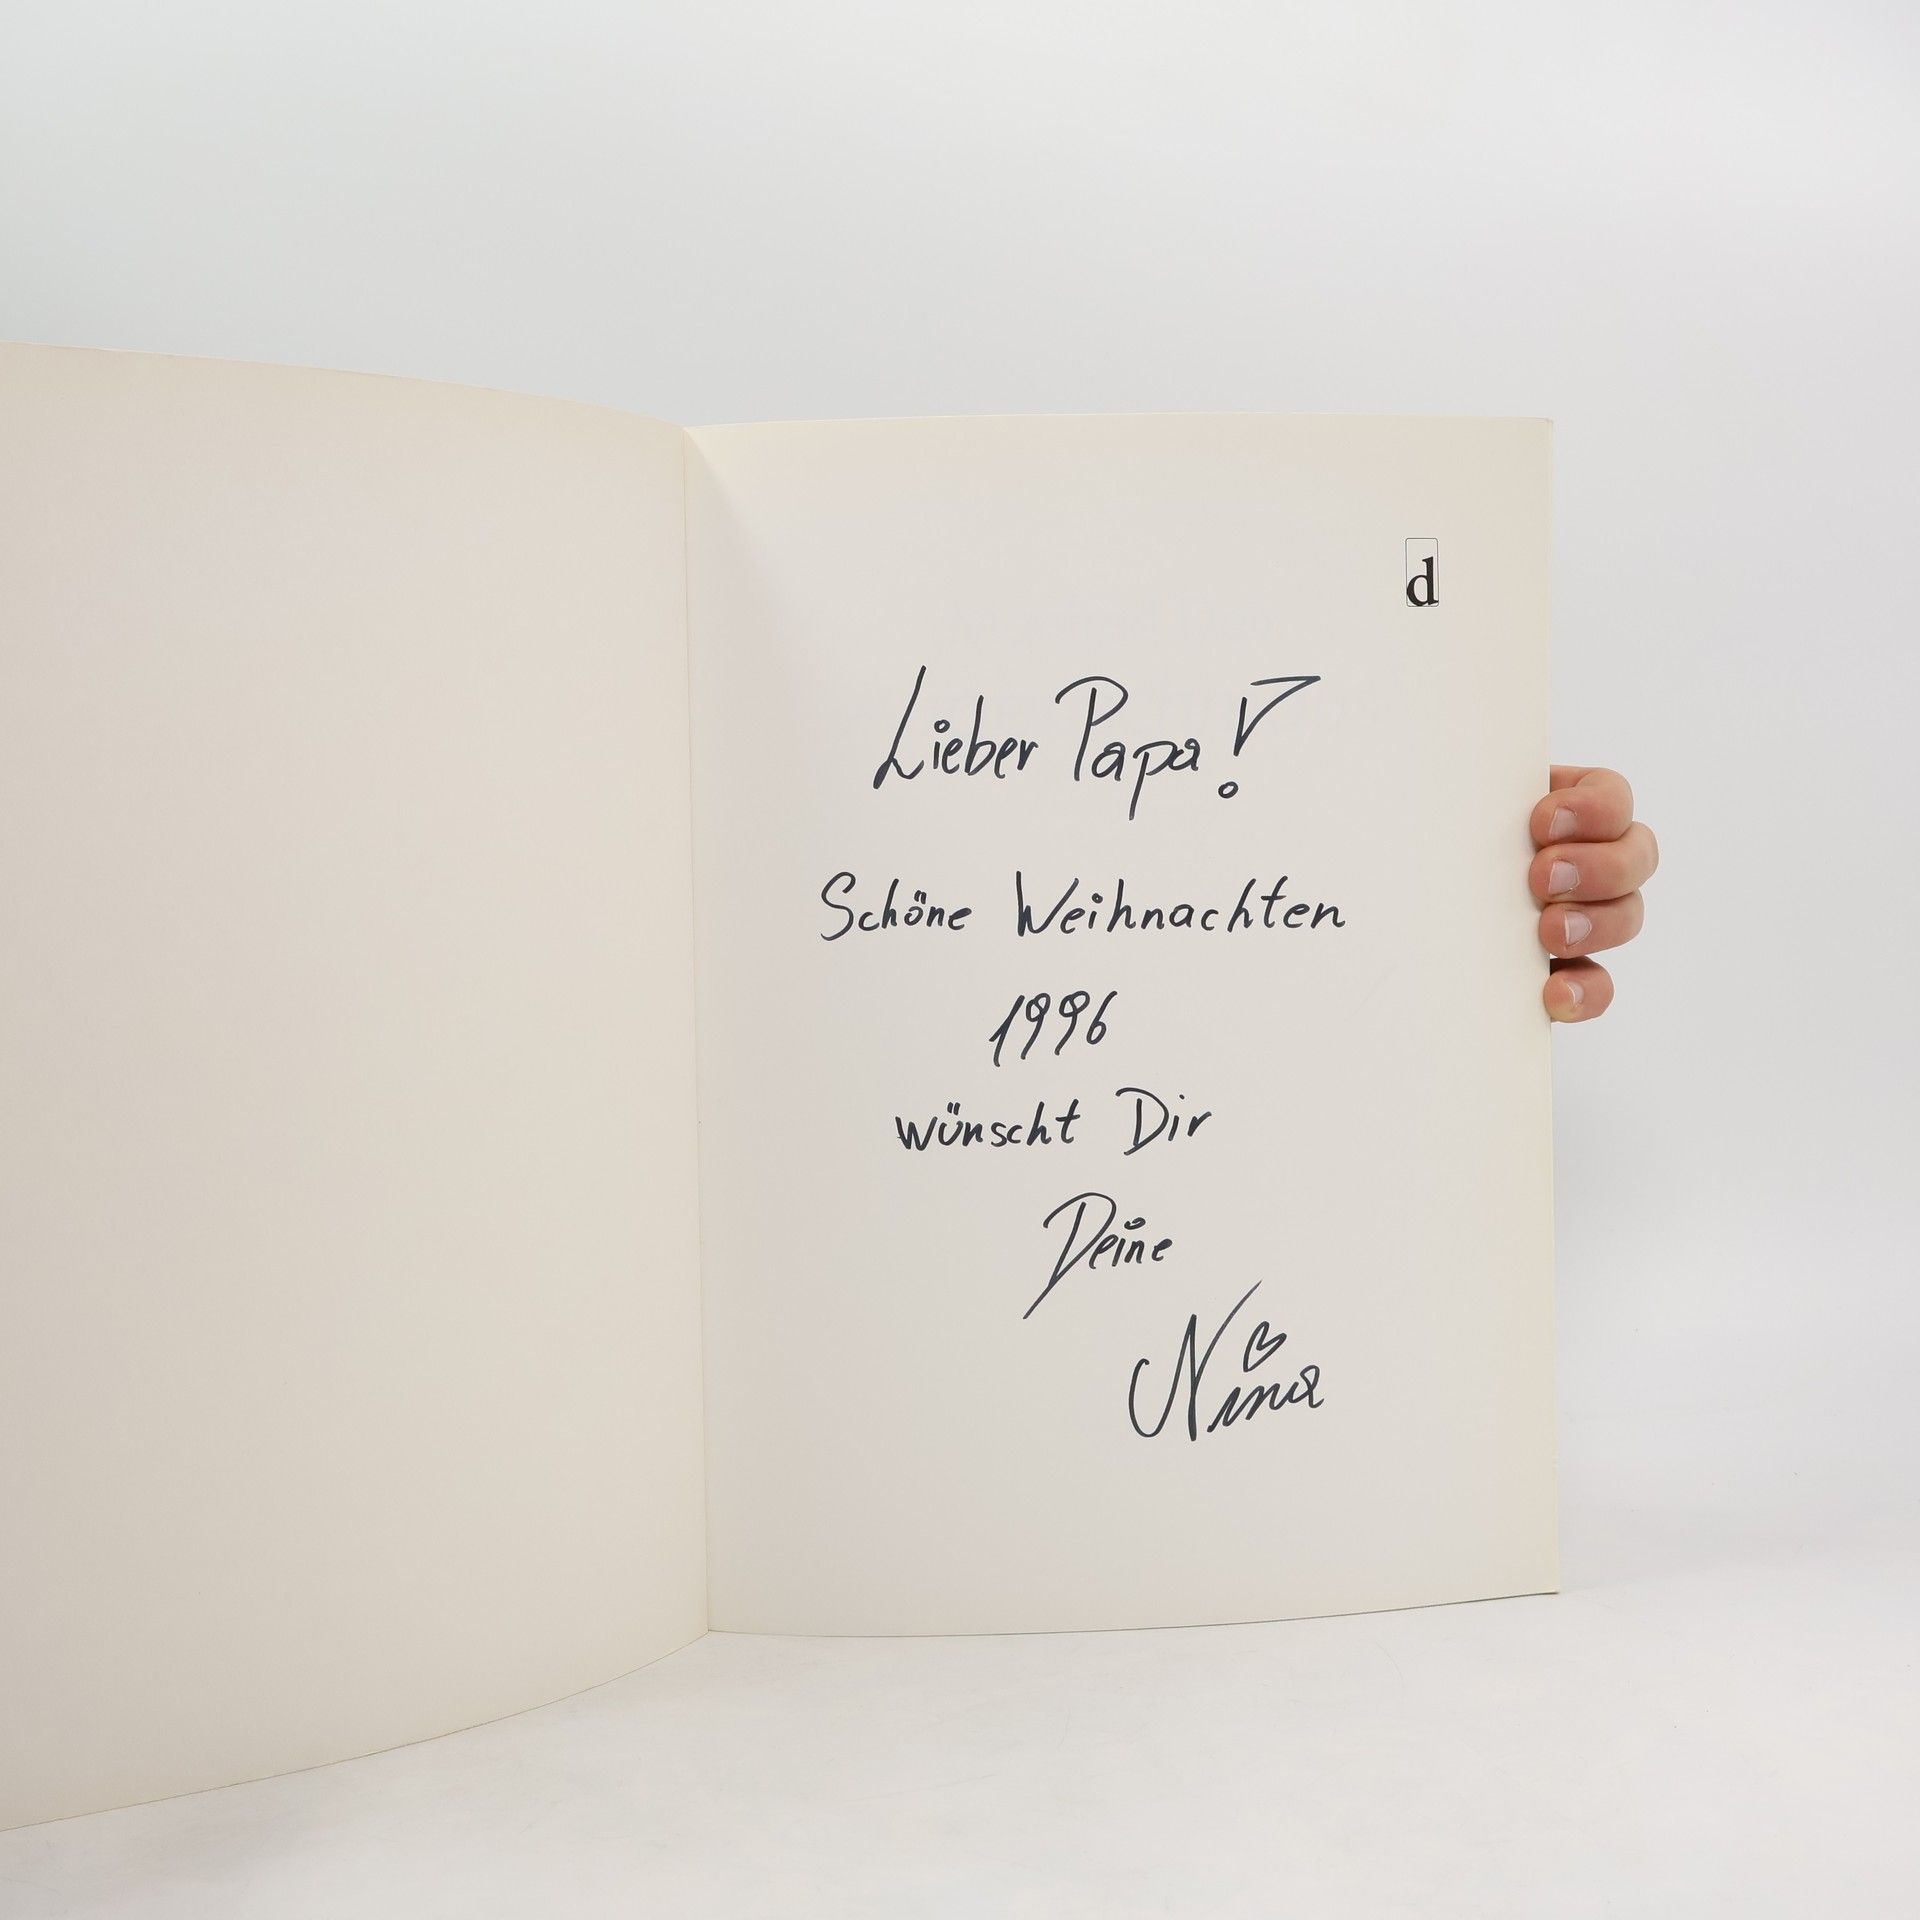 d
Lieber Papa!
Schöne Weihnachten
1996
wünscht Dir
Deine
Nina